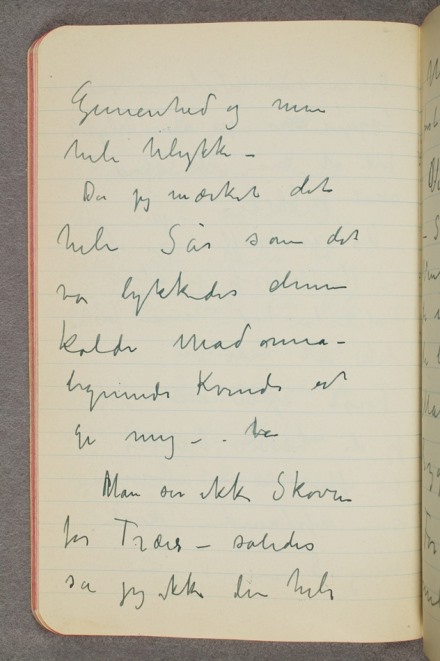 Gemenhed og min
hele Ulykke –
Da jeg mærket det
hele Sår som det
var lykkedes denne
kolde Madonna-
lignende Kvinde at
gi mig – .
Man ser ikke Skoven
for Træer – således
så jeg ikke den hele